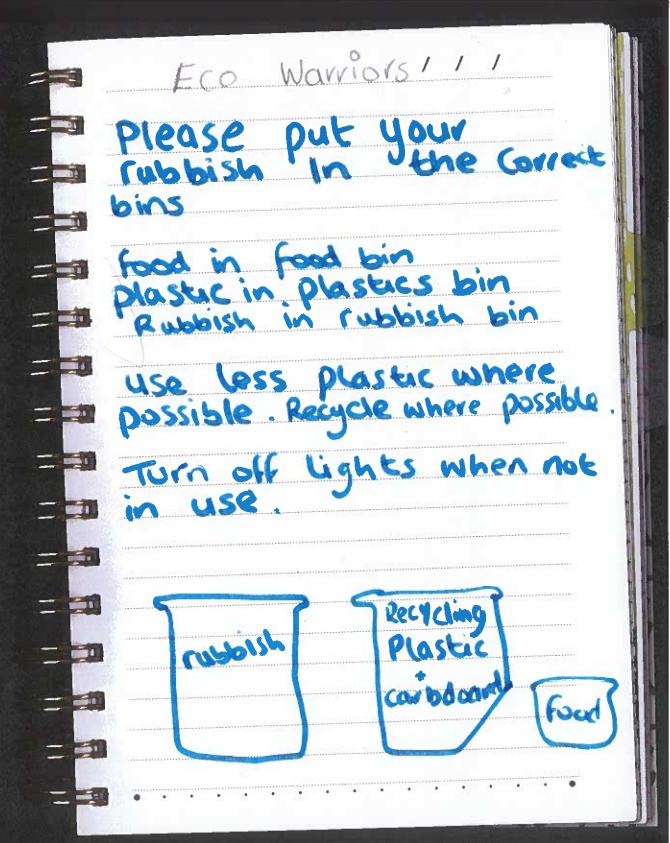 Eco Warriors ! ! !
Please put your
rubbish In the Correct
bins
food in food bin
plastic in plastics bin
Rubbish in rubbish bin
use less plastic where
possible. Recycle where possible.
Turn off lights when not
in use.
rubbish
Recycling
Plastic
+
carbdoard
Food